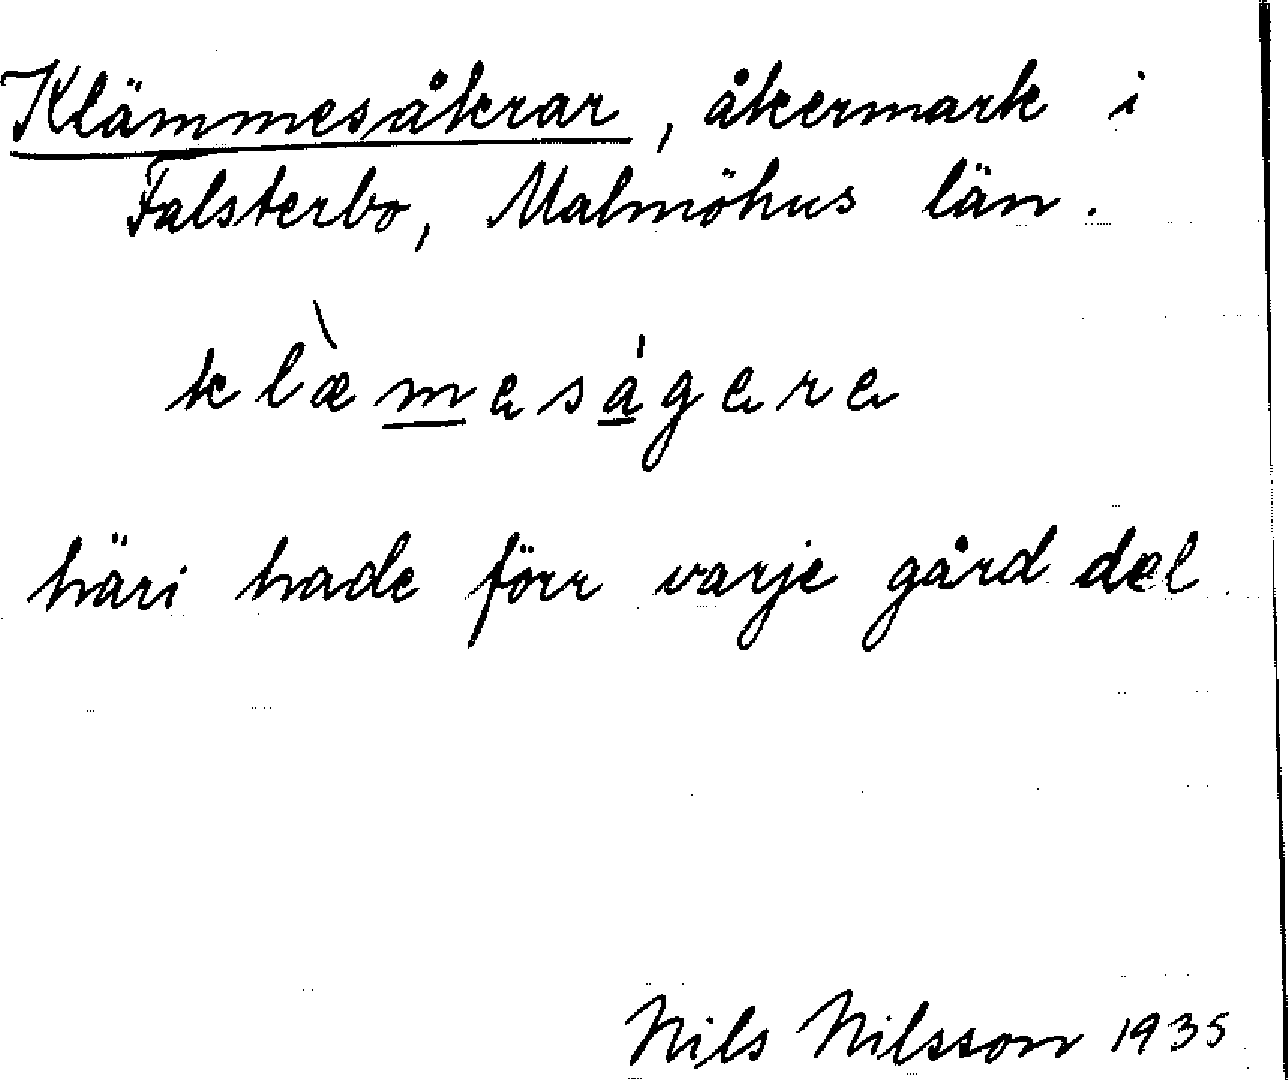 Klämmesåkrar, åkermark i
Falsterbo, Malmöhus län.
klæ̀meságere
häri hade förr varje gård del
Nils Nilsson 1935